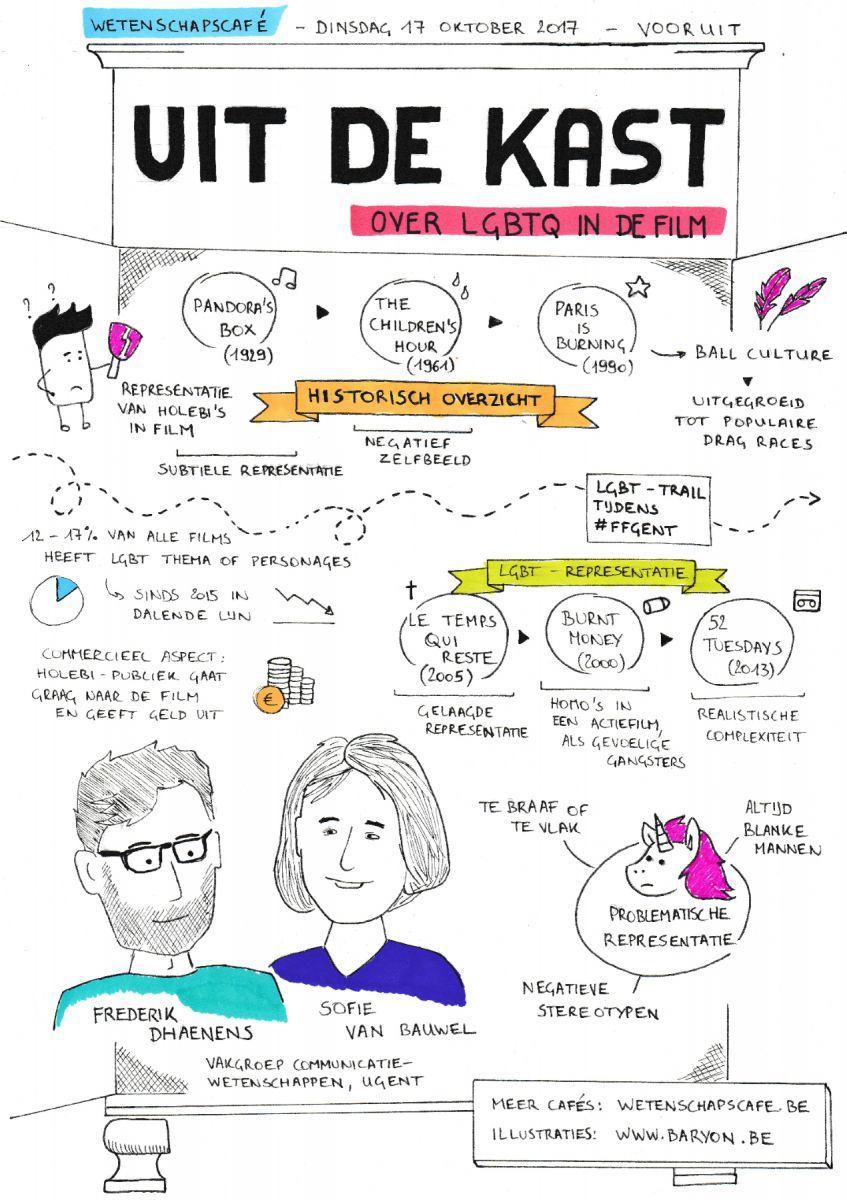 WETENSCHAPSCAFÉ - DINSDAG 17 OKTOBER 2017 - VOORUIT
UIT DE KAST
OVER LGBTQ IN DE FILM
? ?
PANDORA'S
BOX
(1929)
THE
CHILDREN'S
HOUR
(1961)
PARIS
IS
BURNING
(1990)
BALL CULTURE
UITGEGROEID
TOT POPULAIRE
DRAG RACES
REPRESENTATIE
VAN HOLEBI'S
IN FILM
HISTORISCH OVERZICHT
SUBTIELE REPRESENTATIE
NEGATIEF
ZELFBEELD
LGBT - TRAIL
TIJDENS
#FFGENT
12 - 17% VAN ALLE FILMS
HEEFT LGBT THEMA OF PERSONAGES
SINDS 2015 IN
DALENDE LIJN
COMMERCIEEL ASPECT:
HOLEBI - PUBLIEK GAAT
GRAAG NAAR DE FILM
EN GEEFT GELD UIT
€
LGBT - REPRESENTATIE
LE TEMPS
QUI
RESTE
(2005)
BURNT
MONEY
(2000)
52
TUESDAYS
(2013)
GELAAGDE
REPRESENTATIE
HOMO'S IN
EEN ACTIEFILM,
ALS GEVOELIGE
GANGSTERS
REALISTISCHE
COMPLEXITEIT
TE BRAAF OF
TE VLAK
ALTIJD
BLANKE
MANNEN
PROBLEMATISCHE
REPRESENTATIE
NEGATIEVE
STEREOTYPEN
FREDERIK
DHAENENS
SOFIE
VAN BAUWEL
VAKGROEP COMMUNICATIE-
WETENSCHAPPEN, UGENT
MEER CAFÉS: WETENSCHAPSCAFE.BE
ILLUSTRATIES: WWW.BARYON.BE